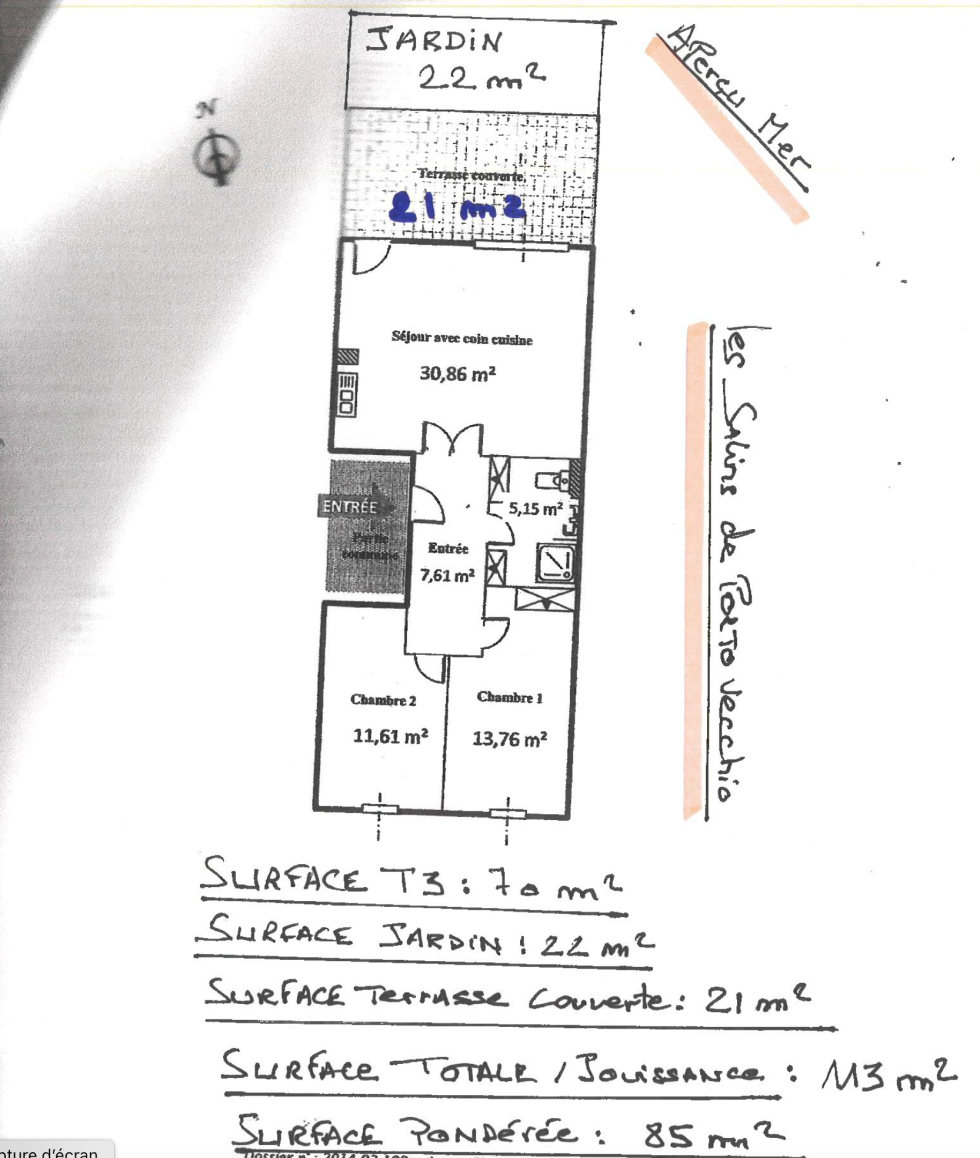 JARDIN
22 m²
APerçu Mer
N
Terrasse couverte
21 m²
Séjour avec coin cuisine
30,86 m²
les Salins de Porto Vecchio
ENTRÉE
Partie
commune
5,15 m²
Entrée
7,61 m²
Chambre 2
11,61 m²
Chambre 1
13,76 m²
SURFACE T3 : 70 m²
SURFACE JARDIN : 22 m²
SURFACE Terrasse Couverte : 21 m²
SURFACE TOTALE / Jouissance : 113 m²
SURFACE PONDÉRÉE : 85 m²
pture d'écran